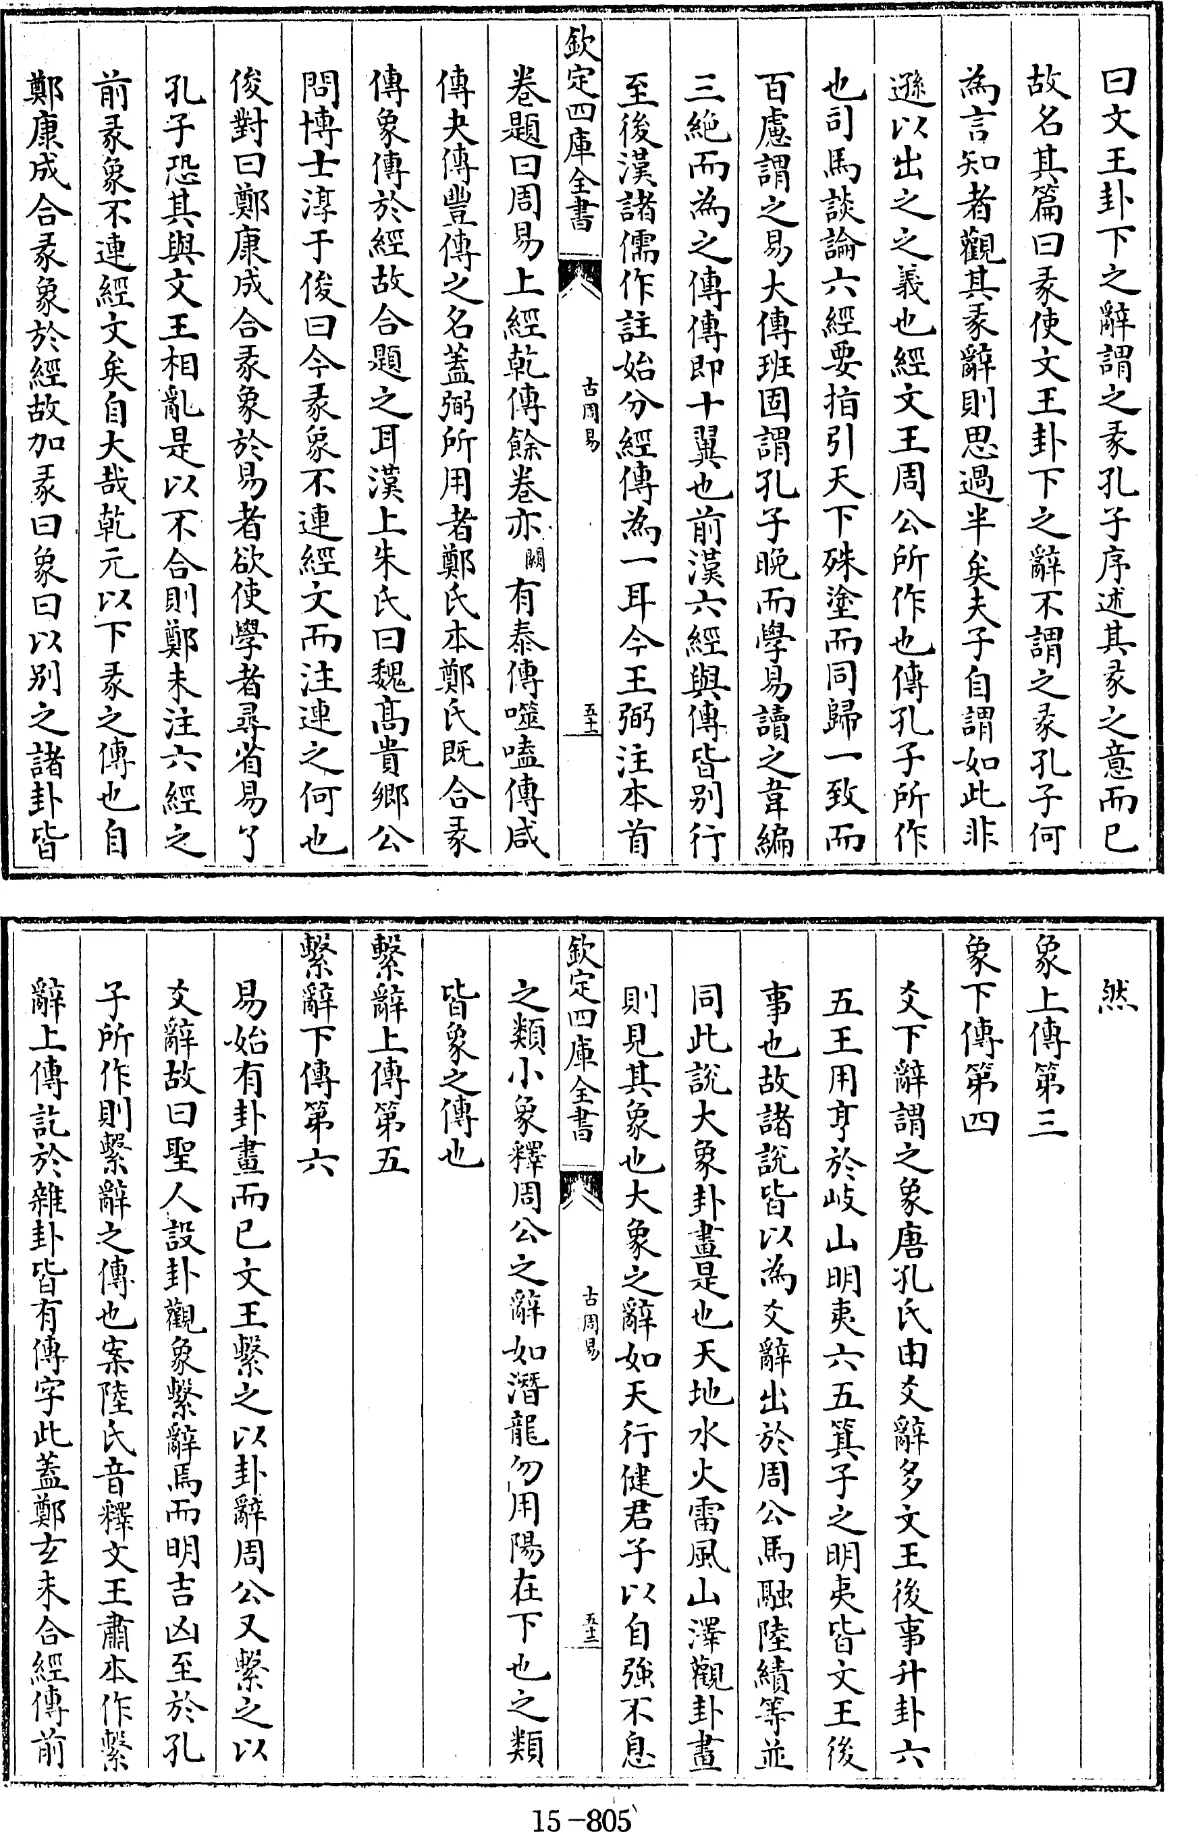 曰文王卦下之辭謂之彖孔子序述其彖之意而已
故名其篇曰彖使文王卦下之辭不謂之彖孔子何
為言知者觀其彖辭則思過半矣夫子自謂如此非
遜以出之之義也經文王周公所作也傳孔子所作
也司馬談論六經要指引天下殊塗而同歸一致而
百慮謂之易大傳班固謂孔子晚而學易讀之韋編
三絶而為之傳傳即十翼也前漢六經與傳皆别行
至後漢諸儒作註始分經傳為一耳今王弼注本首
欽定四庫全書
古周易
五十二
卷題曰周易上經乾傳餘卷亦闕有泰傳噬嗑傳咸
傳夬傳豐傳之名蓋弼所用者鄭氏本鄭氏既合彖
傳象傳於經故合題之耳漢上朱氏曰魏髙貴鄉公
問博士淳于俊曰今彖象不連經文而注連之何也
俊對曰鄭康成合彖象於易者欲使學者尋省易了
孔子恐其與文王相亂是以不合則鄭未注六經之
前彖象不連經文矣自大哉乾元以下彖之傳也自
鄭康成合彖象於經故加彖曰象曰以别之諸卦皆
然
象上傳第三
象下傳第四
爻下辭謂之象唐孔氏由爻辭多文王後事升卦六
五王用亨於岐山明夷六五箕子之明夷皆文王後
事也故諸說皆以為爻辭出於周公馬融陸績等並
同此說大象卦畫是也天地水火雷風山澤觀卦畫
則見其象也大象之辭如天行健君子以自強不息
欽定四庫全書
古周易
五十三
之類小象釋周公之辭如潛龍勿用陽在下也之類
皆象之傳也
繫辭上傳第五
繫辭下傳第六
易始有卦畫而已文王繫之以卦辭周公又繫之以
爻辭故曰聖人設卦觀象繫辭焉而明吉凶至於孔
子所作則繫辭之傳也案陸氏音釋文王肅本作繫
辭上傳訖於雜卦皆有傳字此蓋鄭玄未合經傳前
15-805